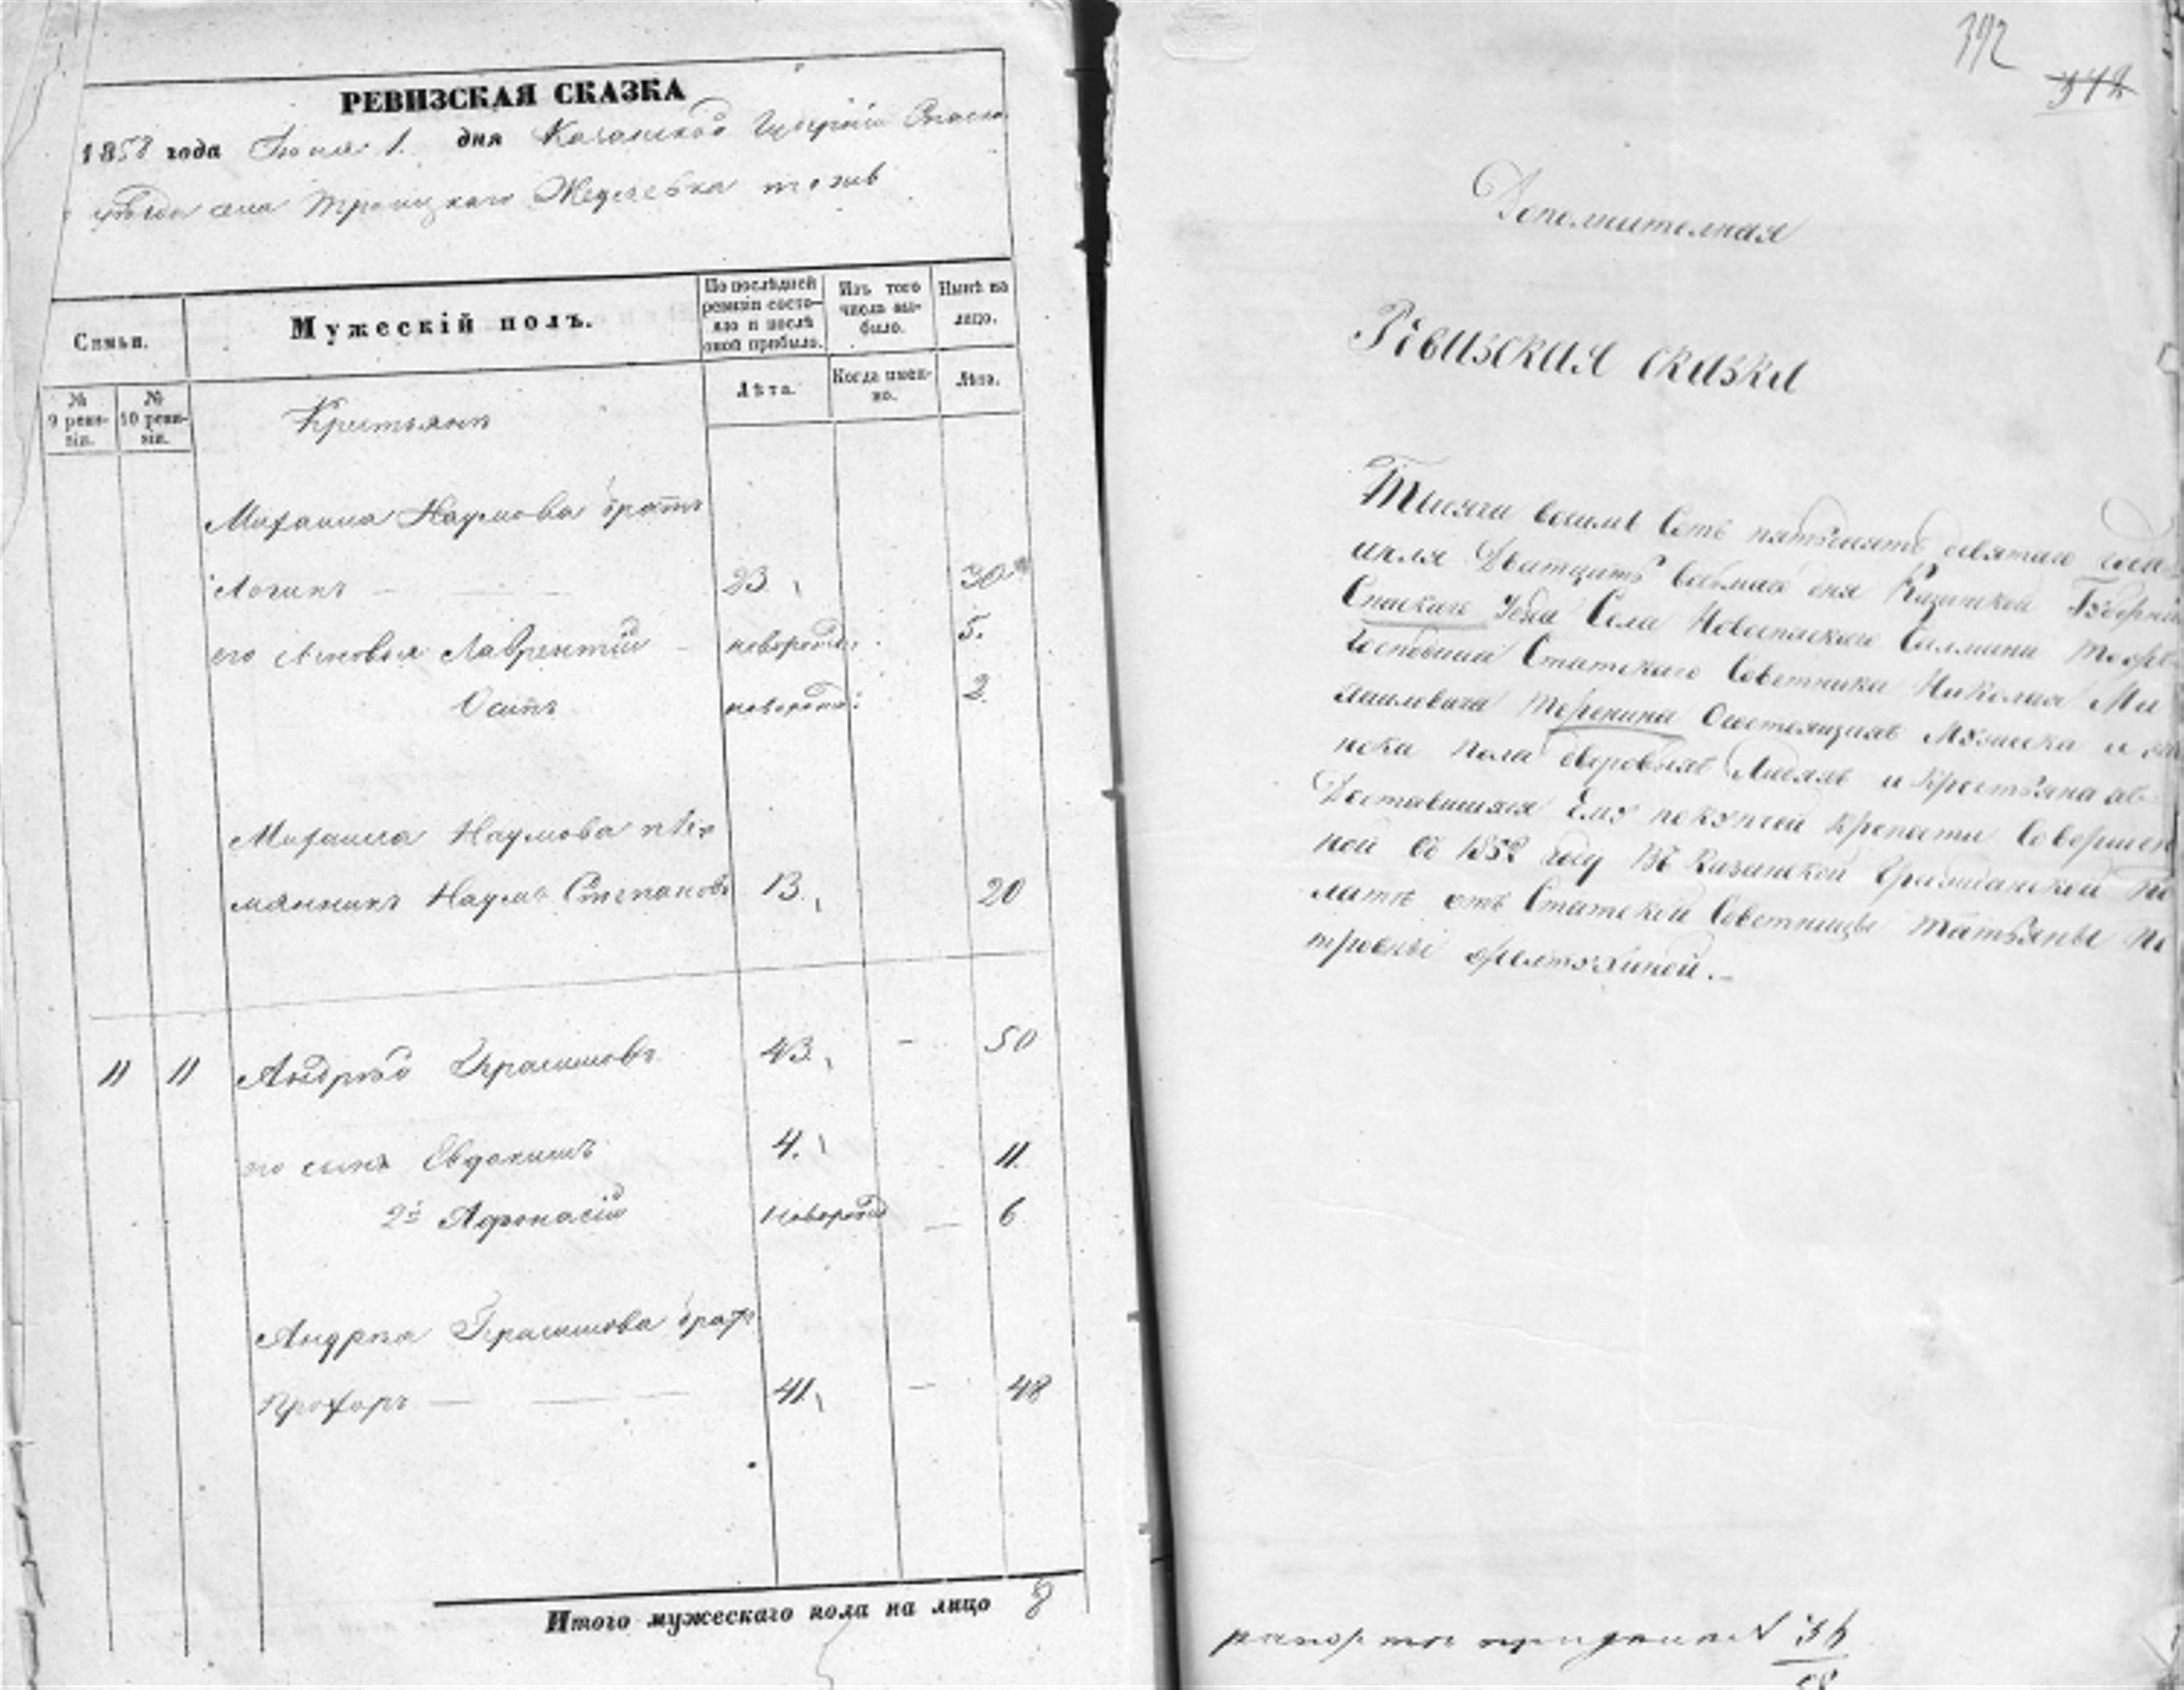 РЕВИЗСКАЯ СКАЗКА
1858 года Июня 1. дня Казанской Губерніи Спаск
уѣзда села Троицкаго тожъ
Семьи.
Мужескій полъ.
По послѣдней ревизіи состояло и послѣ оной прибыло.
Изъ того числа выбыло.
Нынѣ на лицо.
№ 9 ревизіи.
№ 10 ревизіи.
Лѣта.
Когда именно.
Лѣта.
Крестьянъ
Михаила Наумова братъ
Логинъ 23 30
его сыновья Лаврентій новорожд. 5.
Осипъ новорожд: 2
Михаила Наумова пле
мянникъ Наумъ Степановъ 13. 20
11 11 Андрей Герасимовъ 43. - 50
его сынъ Евдокимъ 4. 11.
2й Афонасій новорожд 6
Андрея Герасимова братъ
Прохоръ 41. 48
Итого мужескаго пола на лицо 8
392
Дополнителная
Ревизская сказка
Тысячи восимь Сотъ пятьдесятъ девятаго года
дня Казанской Губерніи
Спаскаго Уезда Села Новоспаскаго тожъ
Статскаго Советника Николая Ми
хаиловича Теренина Состоящихъ Мужеска и
пола дворовыхъ Людяхъ и крестьянахъ
Доставшихся Ему по купчей крепости Совершен
ной въ 1852 году въ Казанской Гражданской Па
латѣ отъ Статской Советницы Татьяны Пе
тровны
№ 36